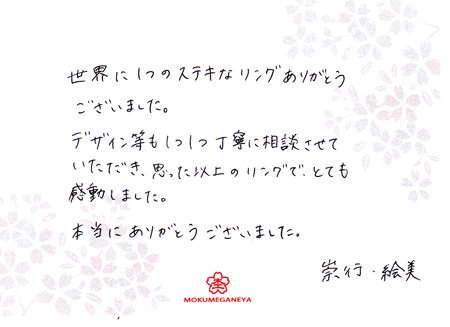 世界に1つのステキなリングありがとう
ございました。
デザイン等も1つ1つ丁寧に相談させて
いただき、思った以上のリングで、とても
感動しました。
本当にありがとうございました。
崇行・絵美
MOKUMEGANEYA